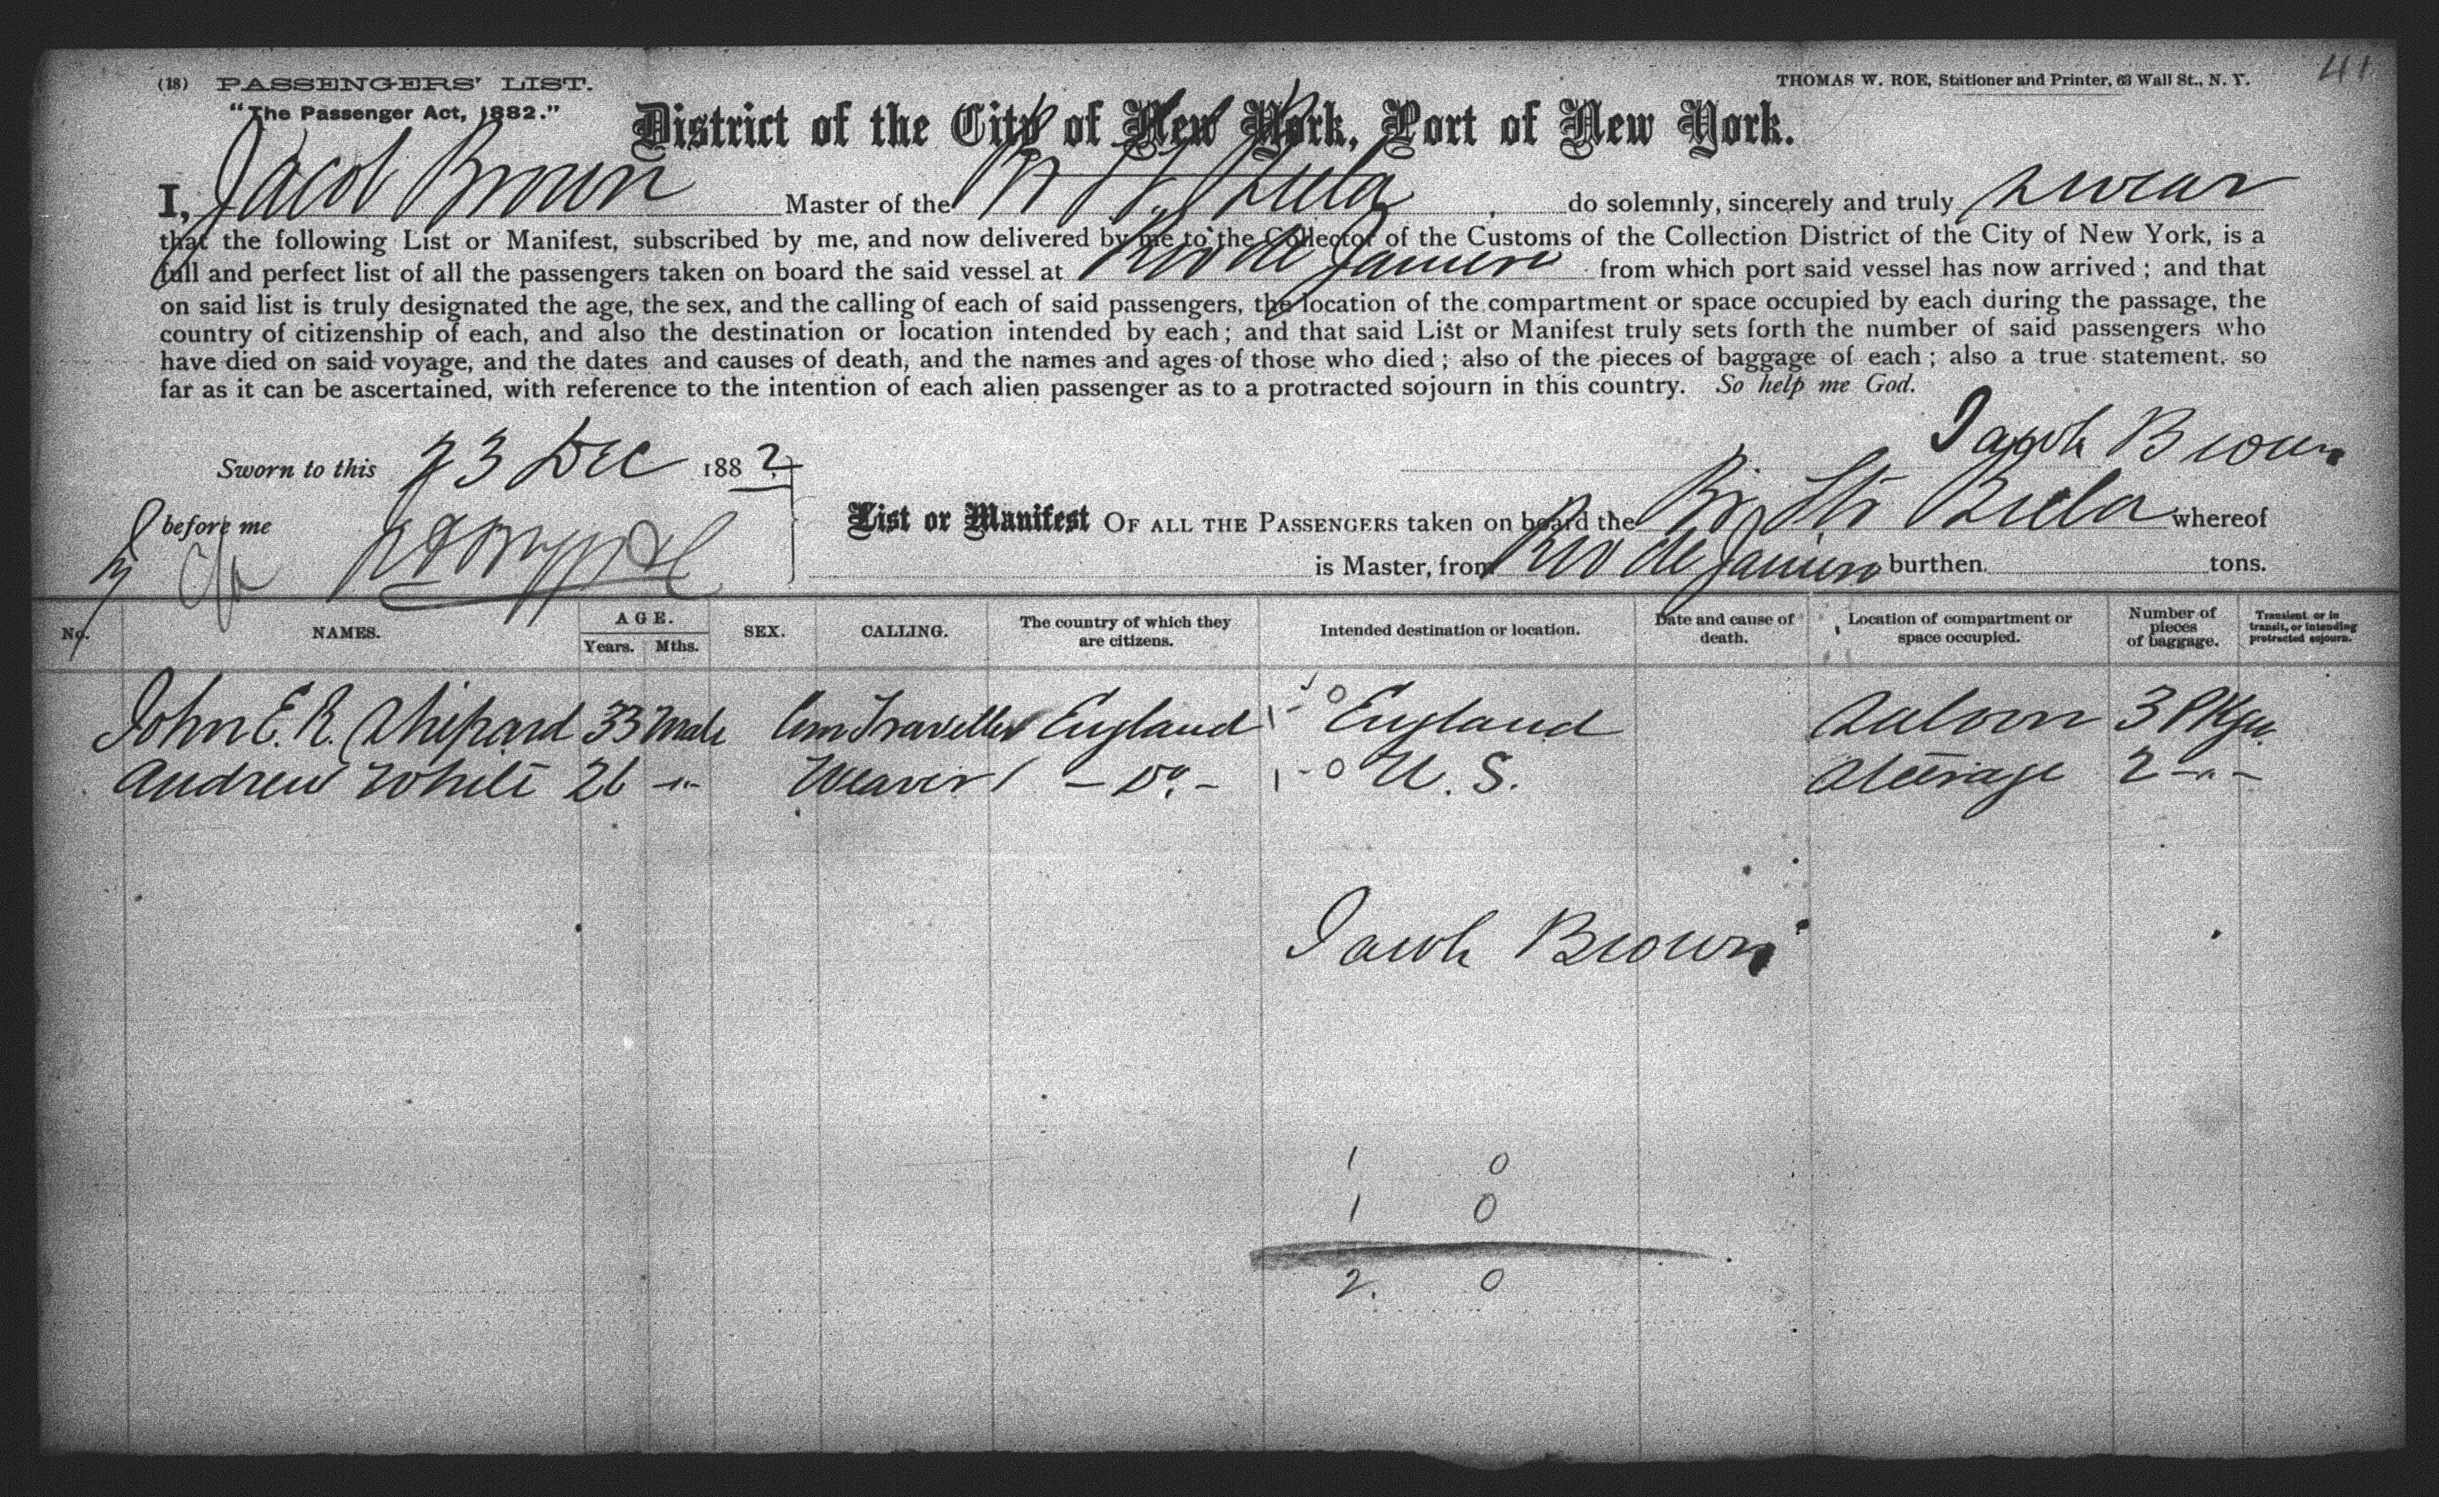 (18) PASSENGERS' LIST. THOMAS W. ROE, Stationer and Printer, 63 Wall St., N. Y. 41
"The Passenger Act, 1882."
District of the City of New York, Port of New York.
I, Jacob Brown Master of the do solemnly, sincerely and truly swear
that the following List or Manifest, subscribed by me, and now delivered by me to the Collector of the Customs of the Collection District of the City of New York, is a
full and perfect list of all the passengers taken on board the said vessel at Rio de Janeiro from which port said vessel has now arrived; and that
on said list is truly designated the age, the sex, and the calling of each of said passengers, the location of the compartment or space occupied by each during the passage, the
country of citizenship of each, and also the destination or location intended by each; and that said List or Manifest truly sets forth the number of said passengers who
have died on said voyage, and the dates and causes of death, and the names and ages of those who died; also of the pieces of baggage of each; also a true statement, so
far as it can be ascertained, with reference to the intention of each alien passenger as to a protracted sojourn in this country. So help me God.
Jacob Brown
Sworn to this 23 Dec 1882
before me
List or Manifest OF ALL THE PASSENGERS taken on board the Br Str whereof
is Master, from Rio de Janeiro burthen tons.
No. NAMES. AGE. Years. Mths. SEX. CALLING. The country of which they are citizens. Intended destination or location. Date and cause of death. Location of compartment or space occupied. Number of pieces of baggage. Transient or in transit, or intending protracted sojourn.
John E. R. Shipard 33 Male Com Traveller England 1 - 0 England Saloon 3 Pkgs.
Andrew White 26 -"- Weaver - Do. - 1 - 0 U. S. Steerage 2 -"-
Jacob Brown
1 0
1 0
2. 0